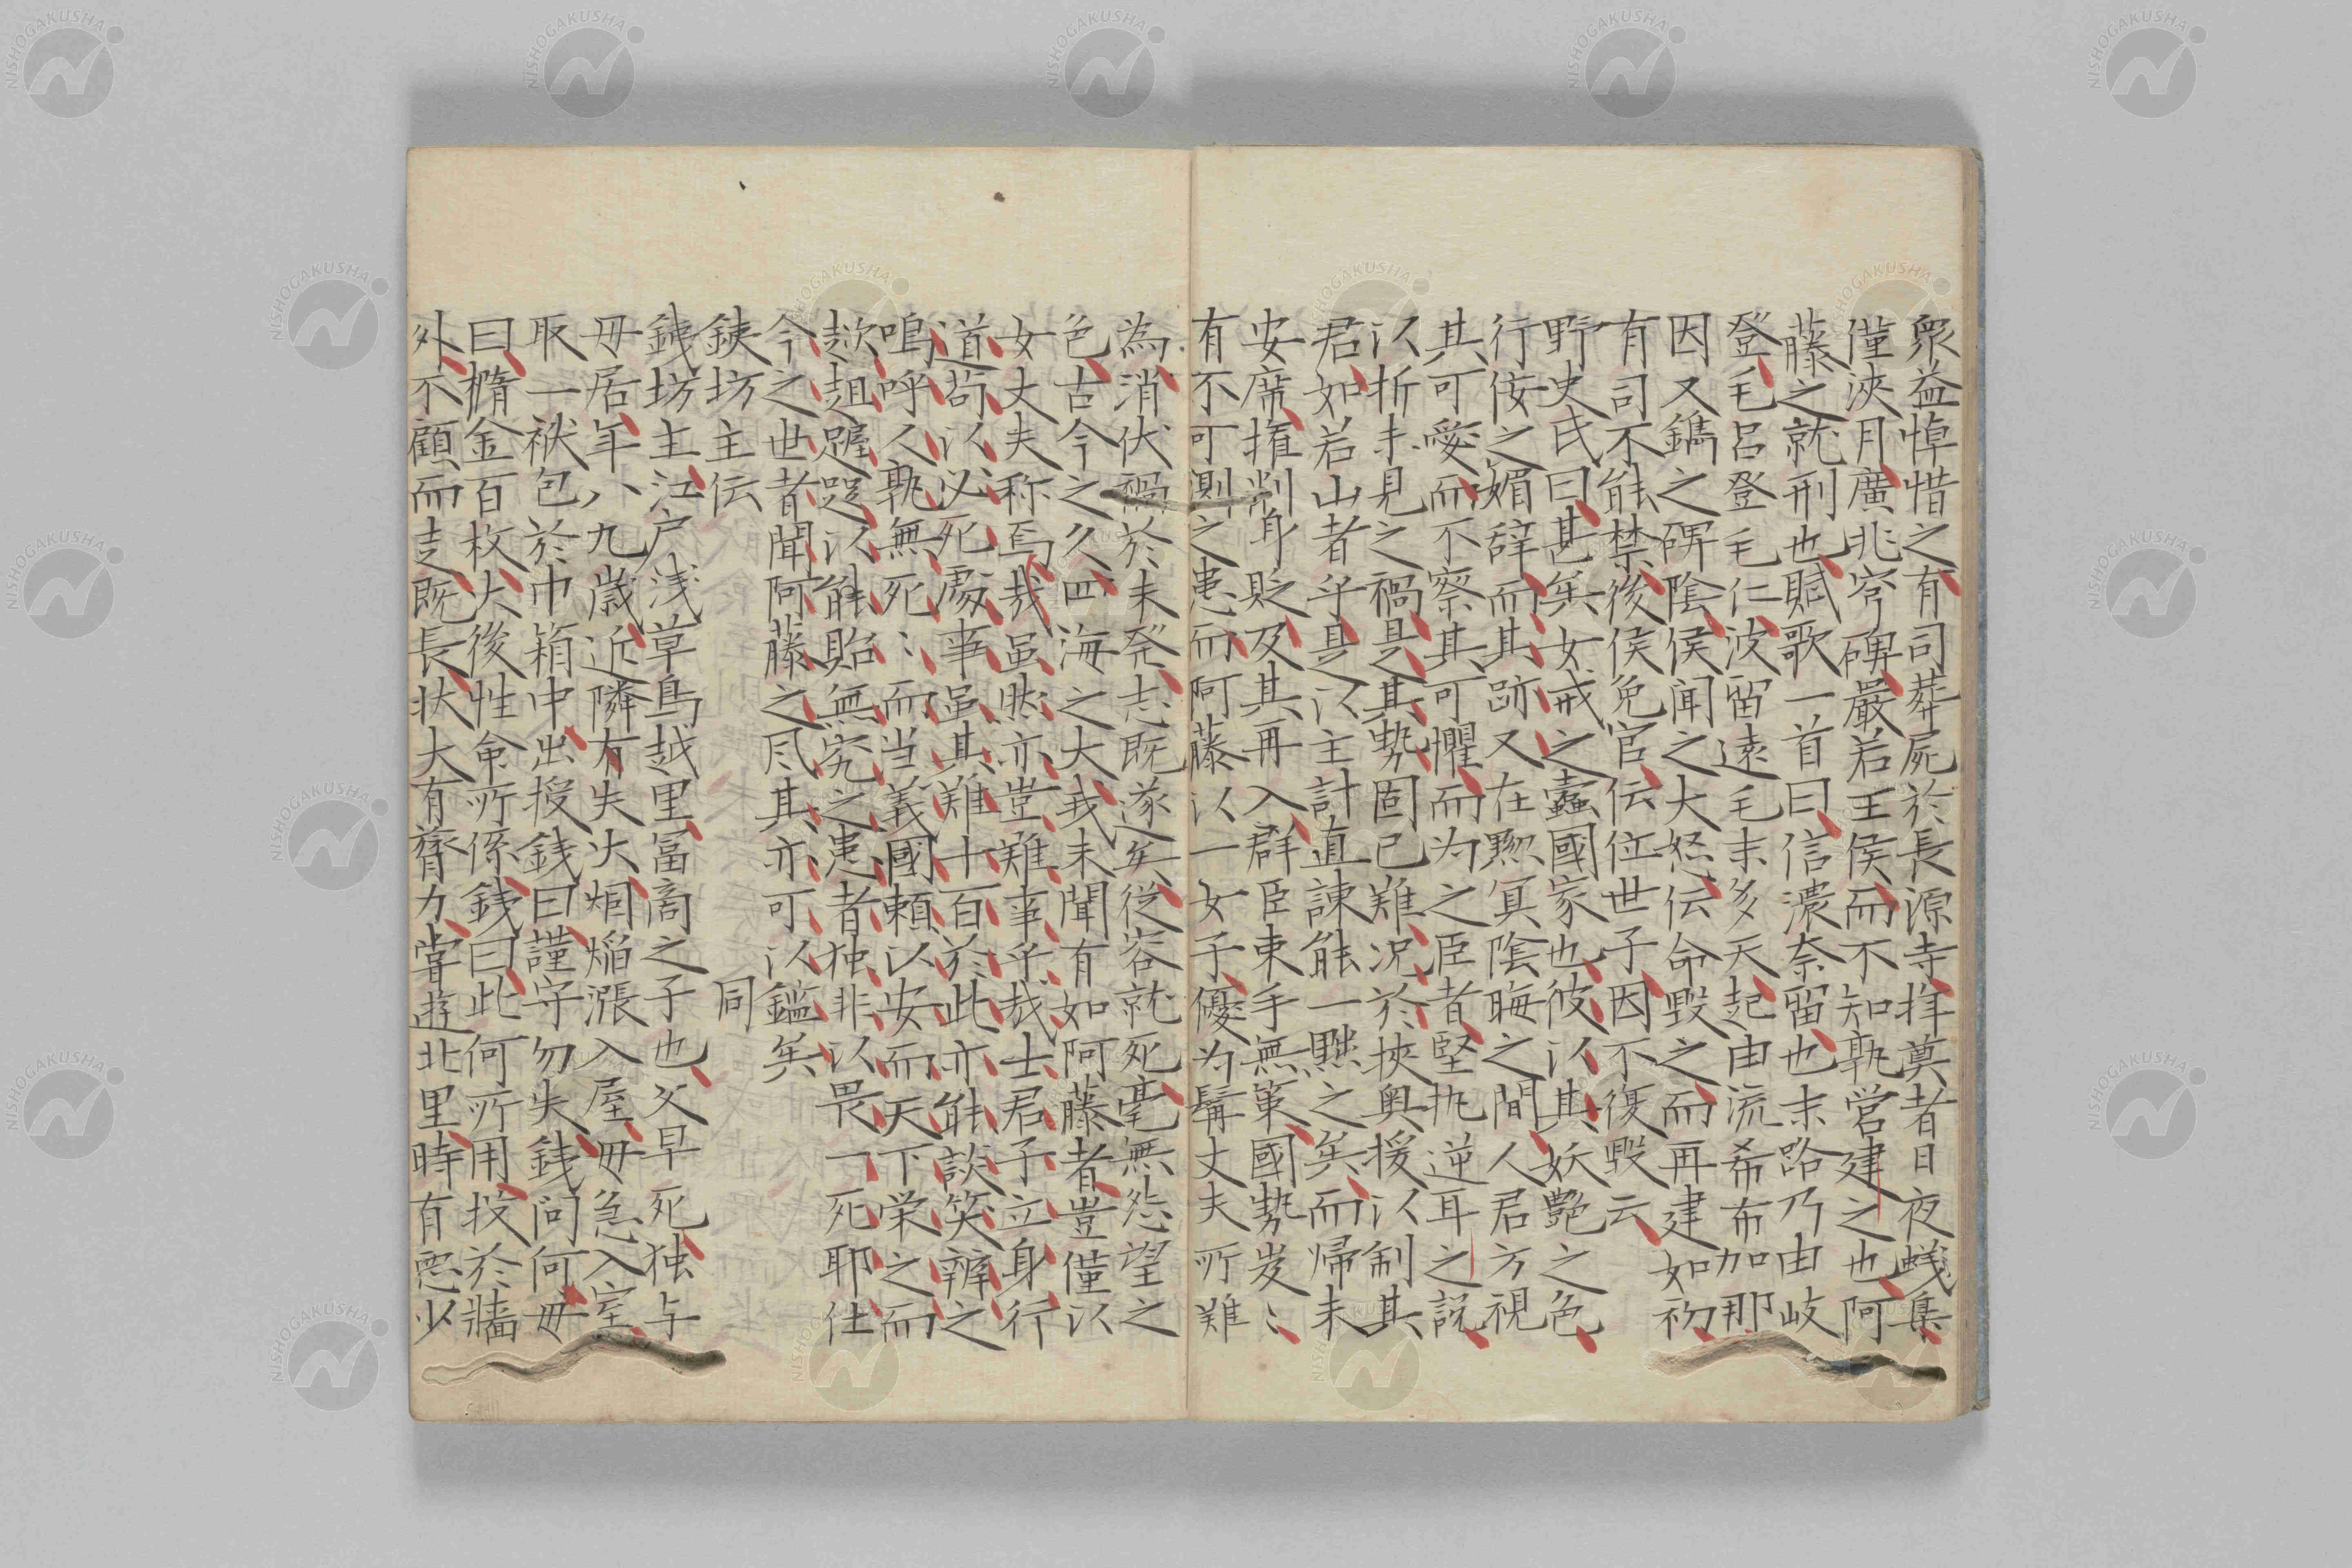 衆益悼惜之有司葬屍於長源寺拝奠者日夜蟻集
僅浹月廣兆穹碑嚴若王侯而不知孰営建之也阿
藤之就刑也賦歌一首曰信濃奈留也末路乃由岐
登毛呂登毛仁波留遠毛末多天起由流希布加那
因又鐫之碑陰侯聞之大怒伝命毀之而再建如初
有司不能禁後侯免官伝位世子因不復毀云
野史氏曰甚矣女戒之蠧國家也彼以其妖艶之色
行侫之媚辞而其跡又在黙冥陰晦之間人君方視
其可愛而不察其可懼而为之臣者堅执逆耳之説
以折未見之禍是其勢固已難况於挾奥援以制其
君如若山者乎是以主計直諌能一黜之矣而帰未
安席擯削身貶及其再入群臣束手無策國勢岌〻
有不可測之患而阿藤以一女子優为鬚丈夫所難
為消伏禍於未発志既遂矣従容就死毫無怨望之
色古今之久四海之大我未聞有如阿藤者豈僅以
女丈夫称焉哉虽然亦豈難事乎哉士君子立身行
道苟以必死處事虽其難十百於此亦能談笑辨之
鳴呼人孰無死〻而当義國頼以安而天下栄之而
趑趄躩踀以能貽無究之患者独非以畏一死耶仕
今之世者聞阿藤之风其亦可以鑑矣
鋏坊主伝 同
銭坊主江户浅草鳥越里冨商之子也父早死独与
毋居年八九歳近隣有失火烟焔漲入屋毋急入室
取一袱包於巾箱中出授銭曰謹守勿失銭问何毋
曰橢金百枚大後性命所係銭曰此何所用投於牆
外不顧而走既長状大有膂力甞遊北里時有悪少